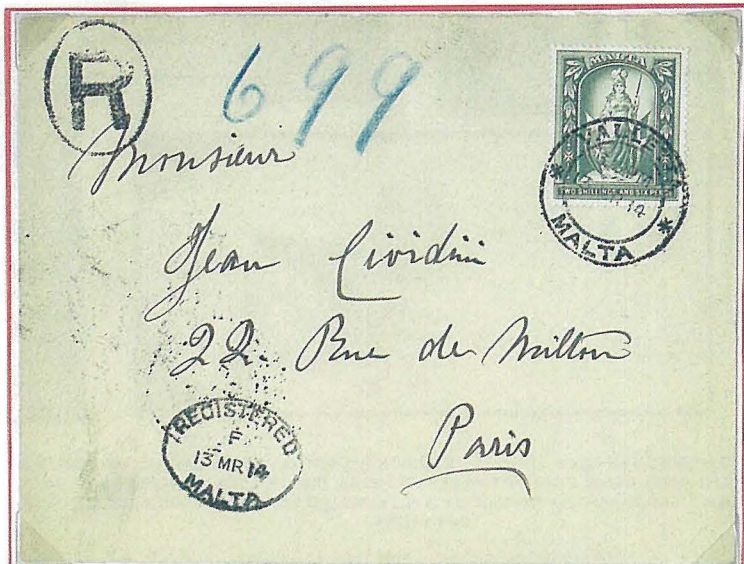 R
699
MALTA
TWO SHILLINGS AND SIX PENCE
VALLETTA
14
MALTA
Monsieur
Jean Cividini
22 Rue de Milton
Paris
REGISTERED
F
13 MR 14
MALTA